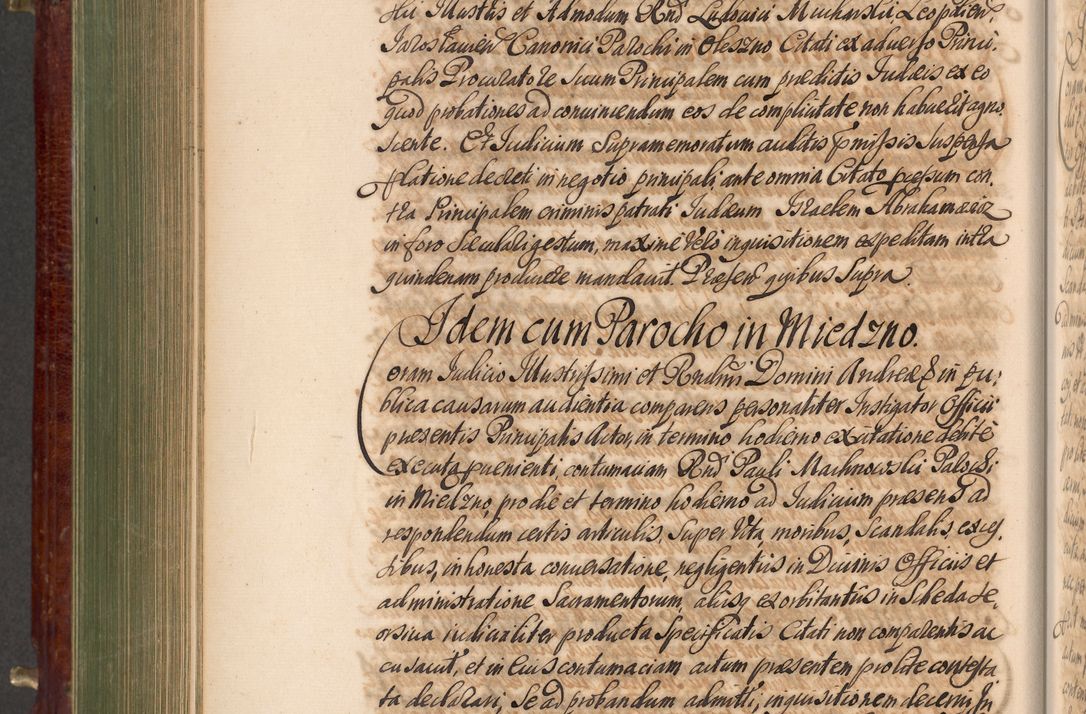 Illustris et Admodum Rnd Ludovici Mucharski, Leopolien,
Jaroslavien Canonici Parochi in Oleszno Citati ex adverso Princi,
palis Procuratore suum Principalem cum praedictis Judaeis ex eo
quod probationes ad convincendum eos de complicitate non habuerit agno,
scente. Et Judicium Supramemoratum auditis pmissis Suspensa
platione decreti in negotio principali ante omnia Citato pcessum con,
tra Principalem criminis patrati Judaeum Israelem Abrahamowicz
in foro Saeculari gestum, maxime vero inquisitionem expeditam intra
quindenam producere mandavit. Praesen quibus Supra.
Idem cum Parocho in Miedzno.
Coram Judicio Illustrissimi et Rndmi Domini Andreae &c in pu,
blica causarum audientia comparens personaliter Instigator Officii
praesentis Principalis Actor, in termino hodierno ex citatione debite
executa pvenienti, contumaciam Rnd Pauli Machnowski Parochi
in Miedzno, pro die et termino hodierno ad Judicium praesens ad
respondendum certis articulis, Super Vita, moribus, Scandalis, exces,
sibus, inhonesta conversatione, negligentiis in Divinis Officiis et
administratione Sacramentorum, aliisq exorbitantiis in Scheda se,
orsiva iudicialiter producta Specificatis Citati non comparentis ac
cusavit, et in Eius contumaciam actum praesentem pro lite contesta
ta declarari, Se ad probandum admitti, inquisitionem decerni, In